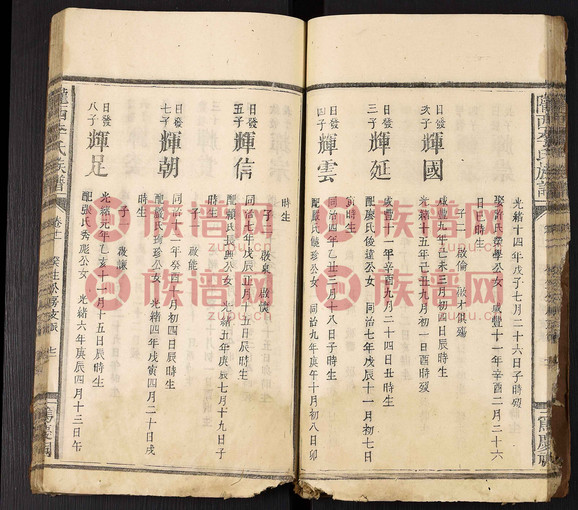 隴西李氏族譜
光緒十四年戊子七月二十六日子時歿
娶許氏榮學公女 咸豐十一年辛酉二月二十六
日日時生
日發
次子
輝國
咸豐九年己未三月初四日辰時生
光緒十五年己丑九月初一日酉時歿
子二 啟倫
日發
三子
輝延
咸豐十一年辛酉九月二十四日丑時生
配廖氏俊達公女 同治七年戊辰十一月初七日
寅時生
日發
四子
輝雲
同治四年乙丑三月十八日子時生
配嚴氏饒珍公女 同治九年庚午十月初八日卯
時生
子二 啟泉 啟
日發
五子
輝信
同治七年戊辰正月十五日辰時生
配賴氏長興公女 光緒五年庚辰七月十九日子
時生
子 啟能
日發
七子
輝朝
同治十二年癸酉八月初四日辰時生
配嚴氏珣珍公女 光緒四年戊寅四月二十日戌
時生
子 啟謙
日發
八子
輝足
光緒元年乙亥十一月十五日辰時生
配張氏秀彪公女 光緒六年庚辰四月十三日午
隴西李氏族譜
卷十二
族谱网
zupu.cn